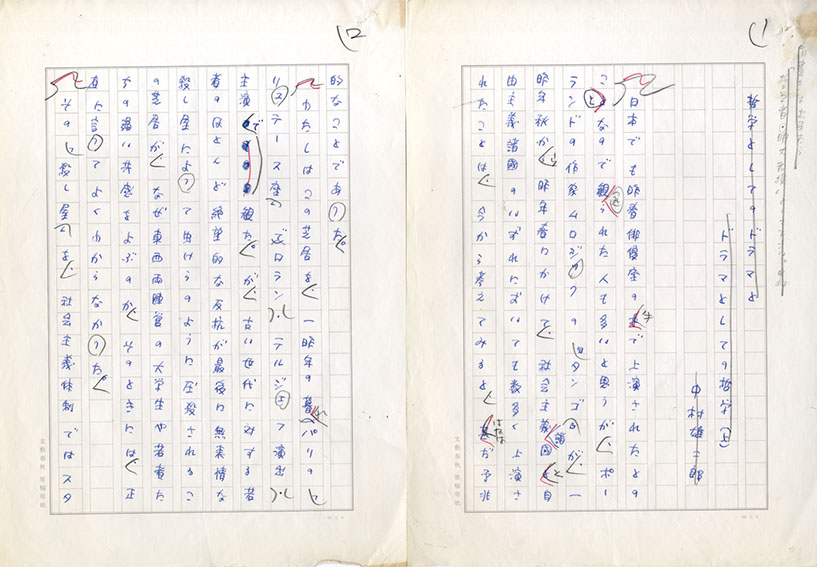 哲学としてのドラマと
ドラマとしての哲学(上)
中村雄二郎
日本でも昨春俳優座の手で上演されたとの
ことなので観られた人も多いと思うが、ポー
ランドの作家ムロジックの『タンゴ』が、一
昨年秋から昨年春にかけて、社会主義諸国と自
由主義諸国のいずれにおいても数多く上演さ
れたことは、今から考えてみると、はなはだ予兆
的なことであった。
わたしはこの芝居を、一昨年の暮れパリの『
リュテース座』でロラン・テルジェフ演出・
主演で観たが、古い世代に対する若
者のほとんど絶望的な反抗が最後に無表情な
殺し屋によって虫けらのように圧殺されるこ
の芝居が、なぜ東西両陣営の大学生や若者た
ちの深い共感をよぶのか、そのときには、正
直に言ってよくわからなかった。
その『殺し屋』を、社会主義体制ではスタ
文藝春秋 原稿用紙
文藝春秋 原稿用紙